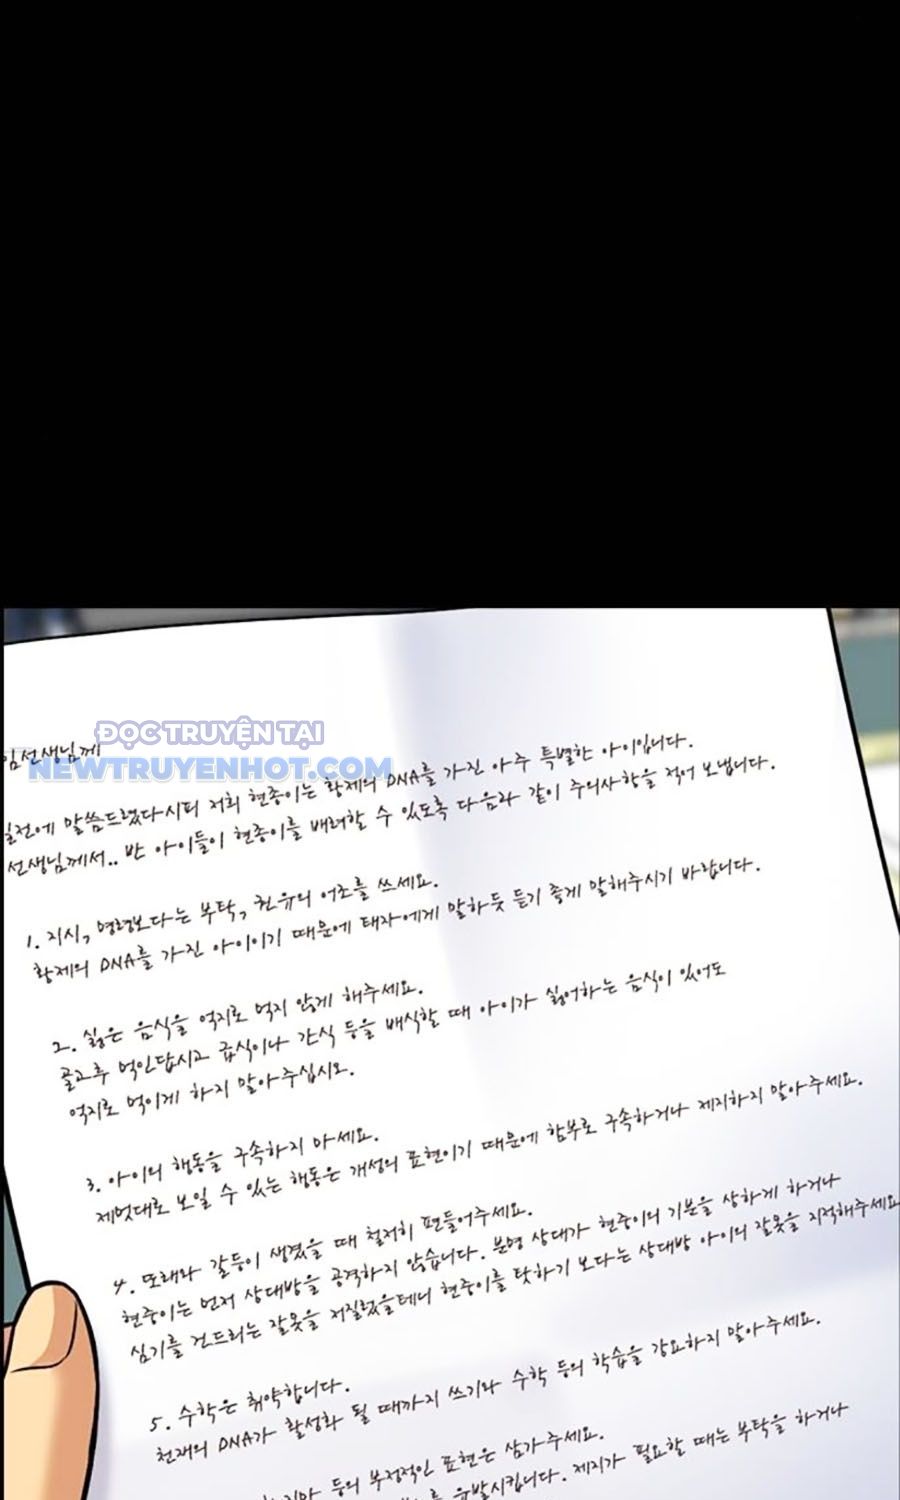 ĐỌC TRUYỆN TẠI
NEWTRUYENHOT.COM
임선생님께
일전에 말씀드렸다시피 저희 현종이는 황제의 DNA를 가진 아주 특별한 아이입니다.
선생님께서.. 반 아이들이 현종이를 배려할 수 있도록 다음과 같이 주의사항을 적어 보냅니다.
1. 지시, 명령보다는 부탁, 권유의 어조를 쓰세요.
황제의 DNA를 가진 아이이기 때문에 태자에게 말하듯 듣기 좋게 말해주시기 바랍니다.
2. 싫은 음식을 억지로 먹지 않게 해주세요.
골고루 먹인답시고 급식이나 간식 등을 배식할 때 아이가 싫어하는 음식이 있어도
억지로 먹이게 하지 말아주십시오.
3. 아이의 행동을 구속하지 마세요.
제멋대로 보일 수 있는 행동은 개성의 표현이기 때문에 함부로 구속하거나 제지하지 말아주세요.
4. 또래와 갈등이 생겼을 때 철저히 편들어주세요.
현종이는 먼저 상대방을 공격하지 않습니다. 분명 상대가 현종이의 기분을 상하게 하거나
심기를 건드리는 잘못을 저질렀을테니 현종이를 탓하기 보다는 상대방 아이의 잘못을 지적해주세요
5. 수학은 취약합니다.
천재의 DNA가 활성화 될 때까지 쓰기와 수학 등의 학습을 강요하지 말아주세요.
등의 부정적인 표현은 삼가주세요.
를 유발시킵니다. 제지가 필요할 때는 부탁을 하거나